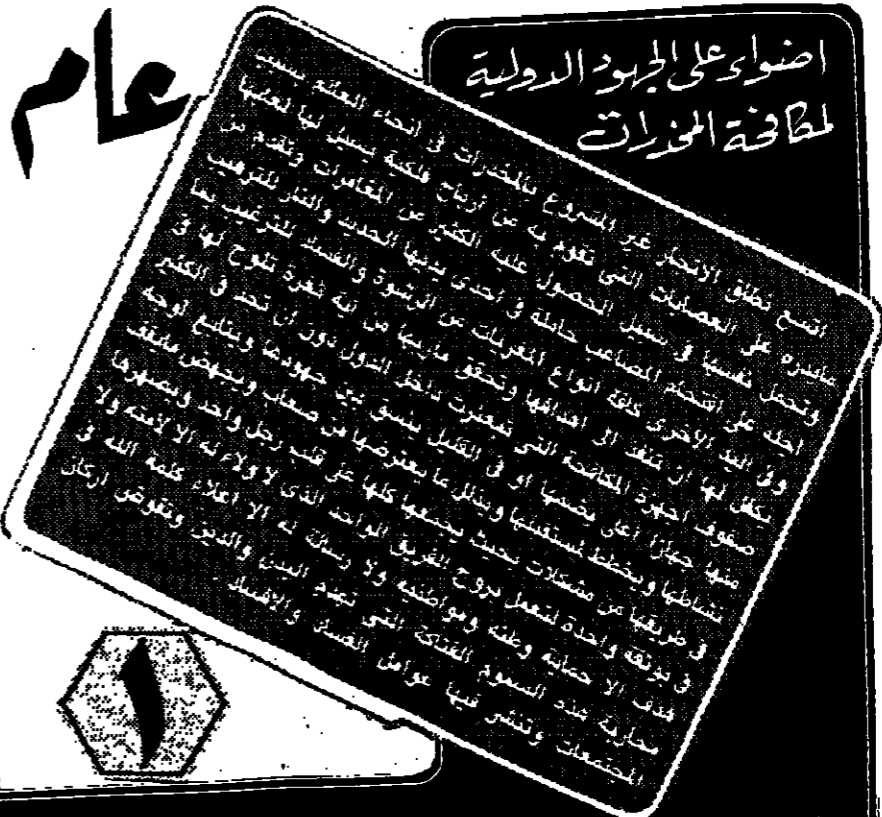 اضواء على الجهود الدولية
لمكافحة المخدرات
عام
اتسع نطاق الاتجار غير المشروع بالمخدرات في أنحاء العالم بسبب
على العصابات التي تقوم به من أرباح فلكية يسيل لها لعابها
وتحمل نفسها في سبيل الحصول عليه الكثير من المغامرات وتقدم من
أجله على اقتحام المصاعب حاملة في احدى يديها الحديد والنار للترهيب
وفي اليد الأخرى كافة أنواع المغريات من الرشوة والفساد للترغيب بما
يكفل لها أن تنفذ الى أهدافها وتحقق مآربها من أية ثغرة تلوح لها في
صفوف أجهزة المكافحة التي تبعثرت داخل الدول دون أن تجد في الكثير
منها جهازا أعلى يضمها أو في القليل ينسق بين جهودها ويتابع أوجه
نشاطها ويخطط لمستقبلها ويذلل ما يعترضها من صعاب ويجهض مايقف
في طريقها من مشكلات بحيث يجمعها كلها على قلب رجل واحد ويصهرها
في بوتقة واحدة لتعمل بروح الفريق الواحد الذي لا ولاء له الا لأمته ولا
هدف الا حماية وطنه ومواطنيه ولا رسالة له الا اعلاء كلمة الله في
محاربة هذه السموم الفتاكة التي تهدم البدن والدين وتقوض أركان
المجتمعات وتنشر فيها عوامل الفساد والافساد .
١